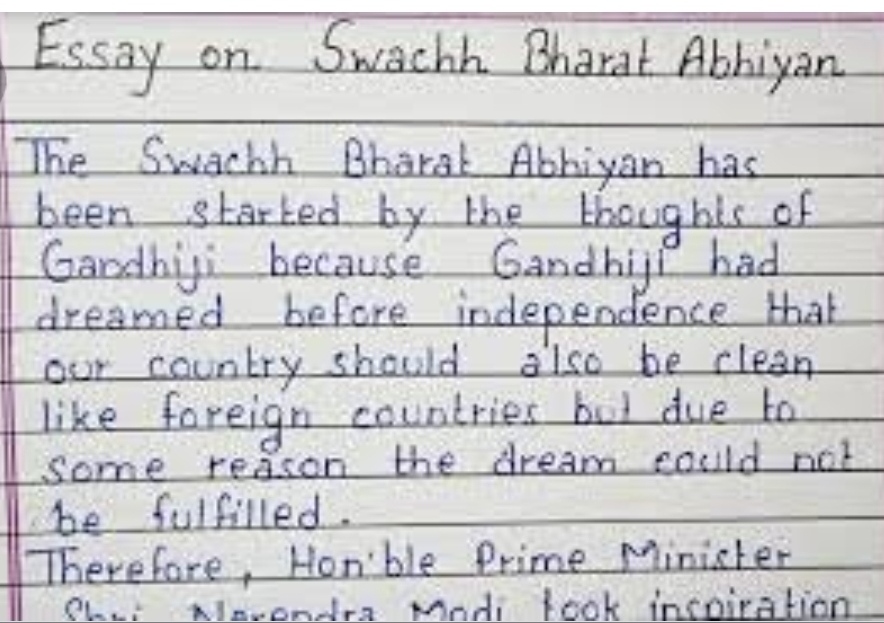 Essay on Swachh Bharat Abhiyan
The Swachh Bharat Abhiyan has
been started by the thoughts of
Gandhiji because Gandhiji had
dreamed before independence that
our country should also be clean
like foreign countries but due to
some reason the dream could not
be fulfilled.
Therefore, Hon'ble Prime Minister
Shri Narendra Modi took inspiration